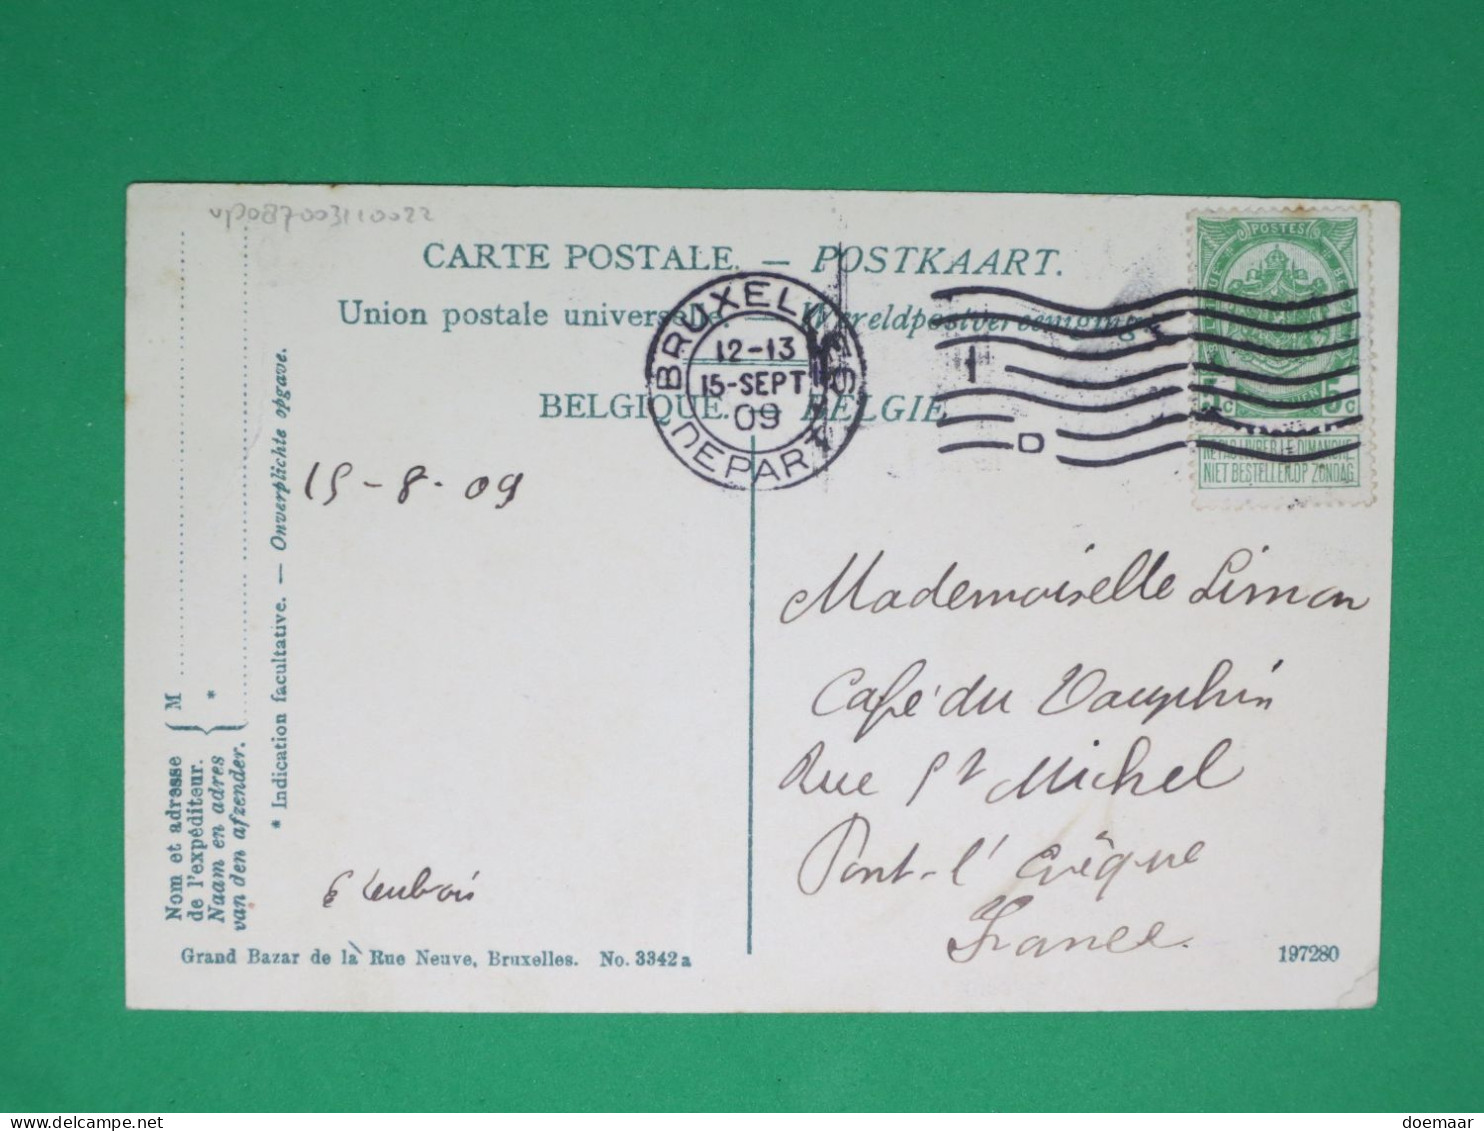 vp087003110022
CARTE POSTALE. — POSTKAART.
Union postale universelle. — Wereldpostvereeniging
BELGIQUE. — BELGIE
BRUXELLES
12-13
15-SEPT
09
DEPART
1
D
POSTES
5c 5c
NE PAS LIVRER LE DIMANCHE
NIET BESTELLEN OP ZONDAG
15-8-09
Mademoiselle Limon
Café du Dauphin
Rue St Michel
Pont-l'Evêque
France.
Nom et adresse
de l'expéditeur.
Naam en adres
van den afzender.
M
*
* Indication facultative. — Onverplichte opgave.
Grand Bazar de la Rue Neuve, Bruxelles. No. 3342a
197280
doemaar